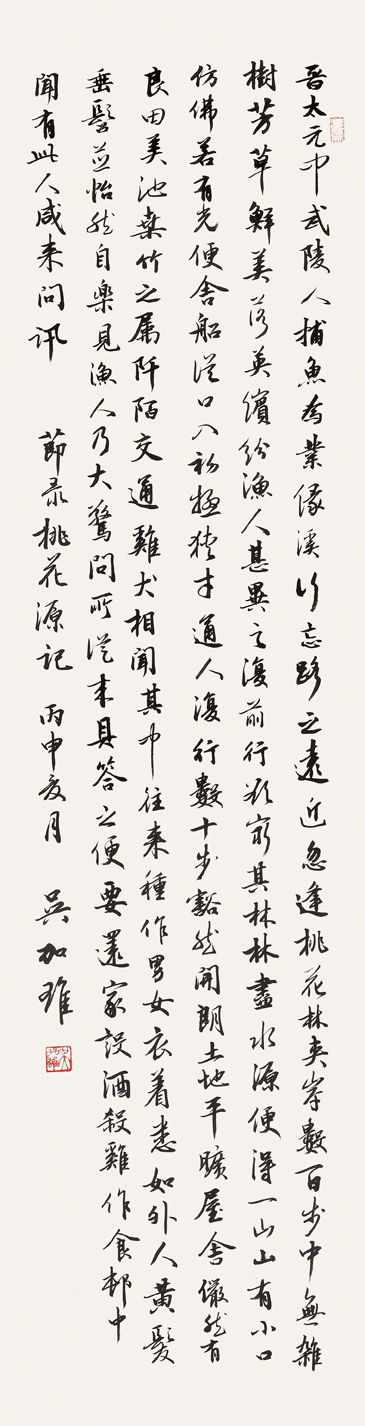 晋太元中武陵人捕魚為業緣溪行忘路之遠近忽逢桃花林夾岸數百步中無雜
樹芳草鮮美落英繽紛漁人甚異之復前行欲窮其林林盡水源便得一山山有小口
仿佛若有光便舍船從口入初極狹才通人復行數十步豁然開朗土地平曠屋舍儼然有
良田美池桑竹之属阡陌交通雞犬相聞其中往来種作男女衣着悉如外人黄髮
垂髫並怡然自樂見漁人乃大驚問所從来具答之便要還家設酒殺雞作食邨中
聞有此人咸来問訊 節录桃花源記 丙申夏月 吳加